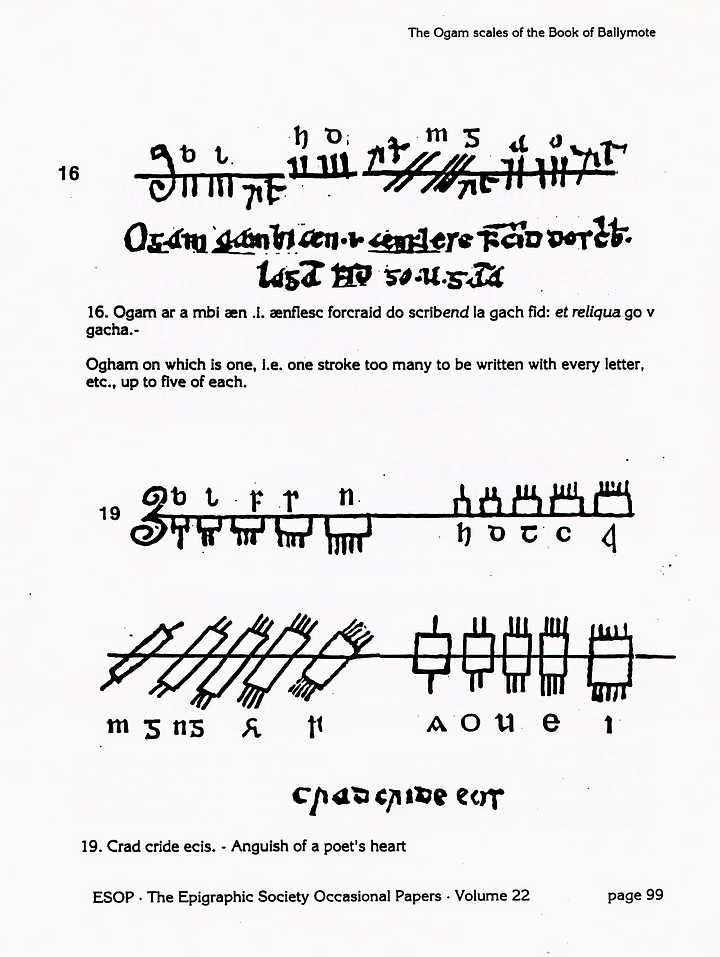 The Ogam scales of the Book of Ballymote
16
b l
h d
m g
a o
16. Ogam ar a mbi æn .i. ænflesc forcraid do scribend la gach fid: et reliqua go v
gacha.-
Ogham on which is one, i.e. one stroke too many to be written with every letter,
etc., up to five of each.
19
b l f n
h d t c q
m g ng
a o u e i
crad cride ecis
19. Crad cride ecis. - Anguish of a poet's heart
ESOP · The Epigraphic Society Occasional Papers · Volume 22
page 99